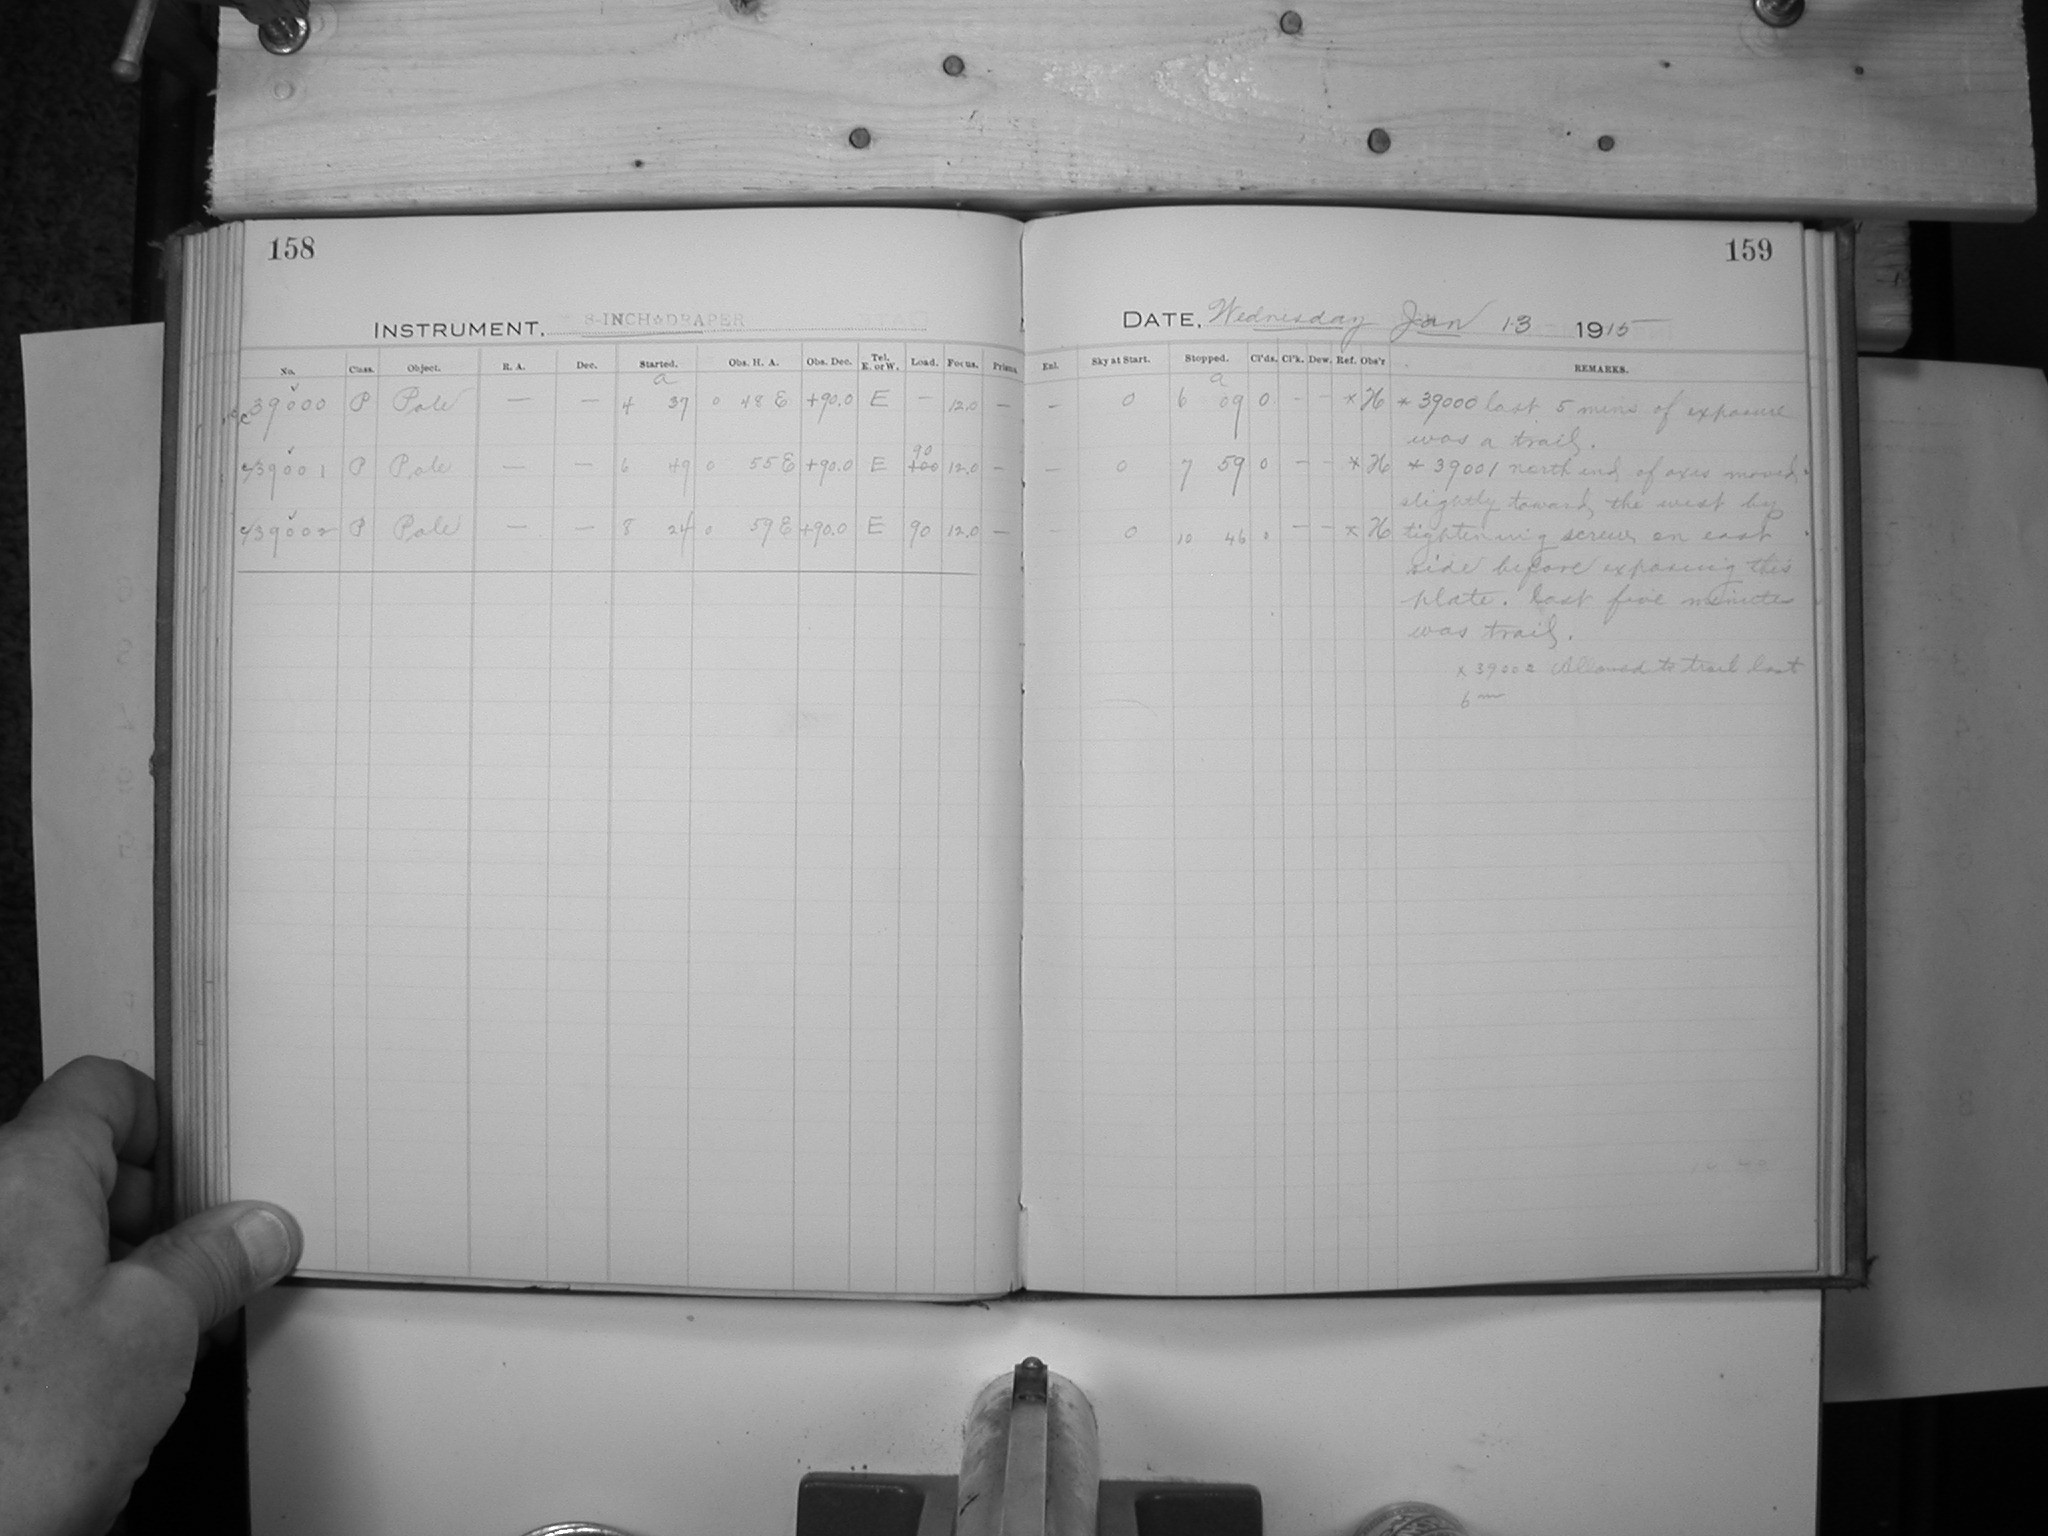 158
INSTRUMENT, 8-INCH DRAPER
No. Class. Object. R. A. Dec. Started. Obs. H. A. Obs. Dec. Tel. E. or W. Load. Focus. Prisms
a
c 39000 P Pole — — 4 37 0 48 E +90.0 E — 12.0 —
90
c/39001 P Pole — — 6 49 0 55 E +90.0 E 100 12.0 —
c/39002 P Pole — — 8 24 0 59 E +90.0 E 90 12.0 —
159
DATE, Wednesday Jan 13 1915
Enl. Sky at Start. Stopped. Cl'ds. Cl'k. Dew. Ref. Obs'r REMARKS.
a
— 0 6 09 0 — — * H * 39000 last 5 mins of exposure
was a trail.
— 0 7 59 0 — — * H * 39001 north end of axis moved
slightly toward the west by
0 10 46 0 — — * H tightening screws on east
side before exposing this
plate. last five minutes
was trail.
x 39002 Allowed to trail last
6 m